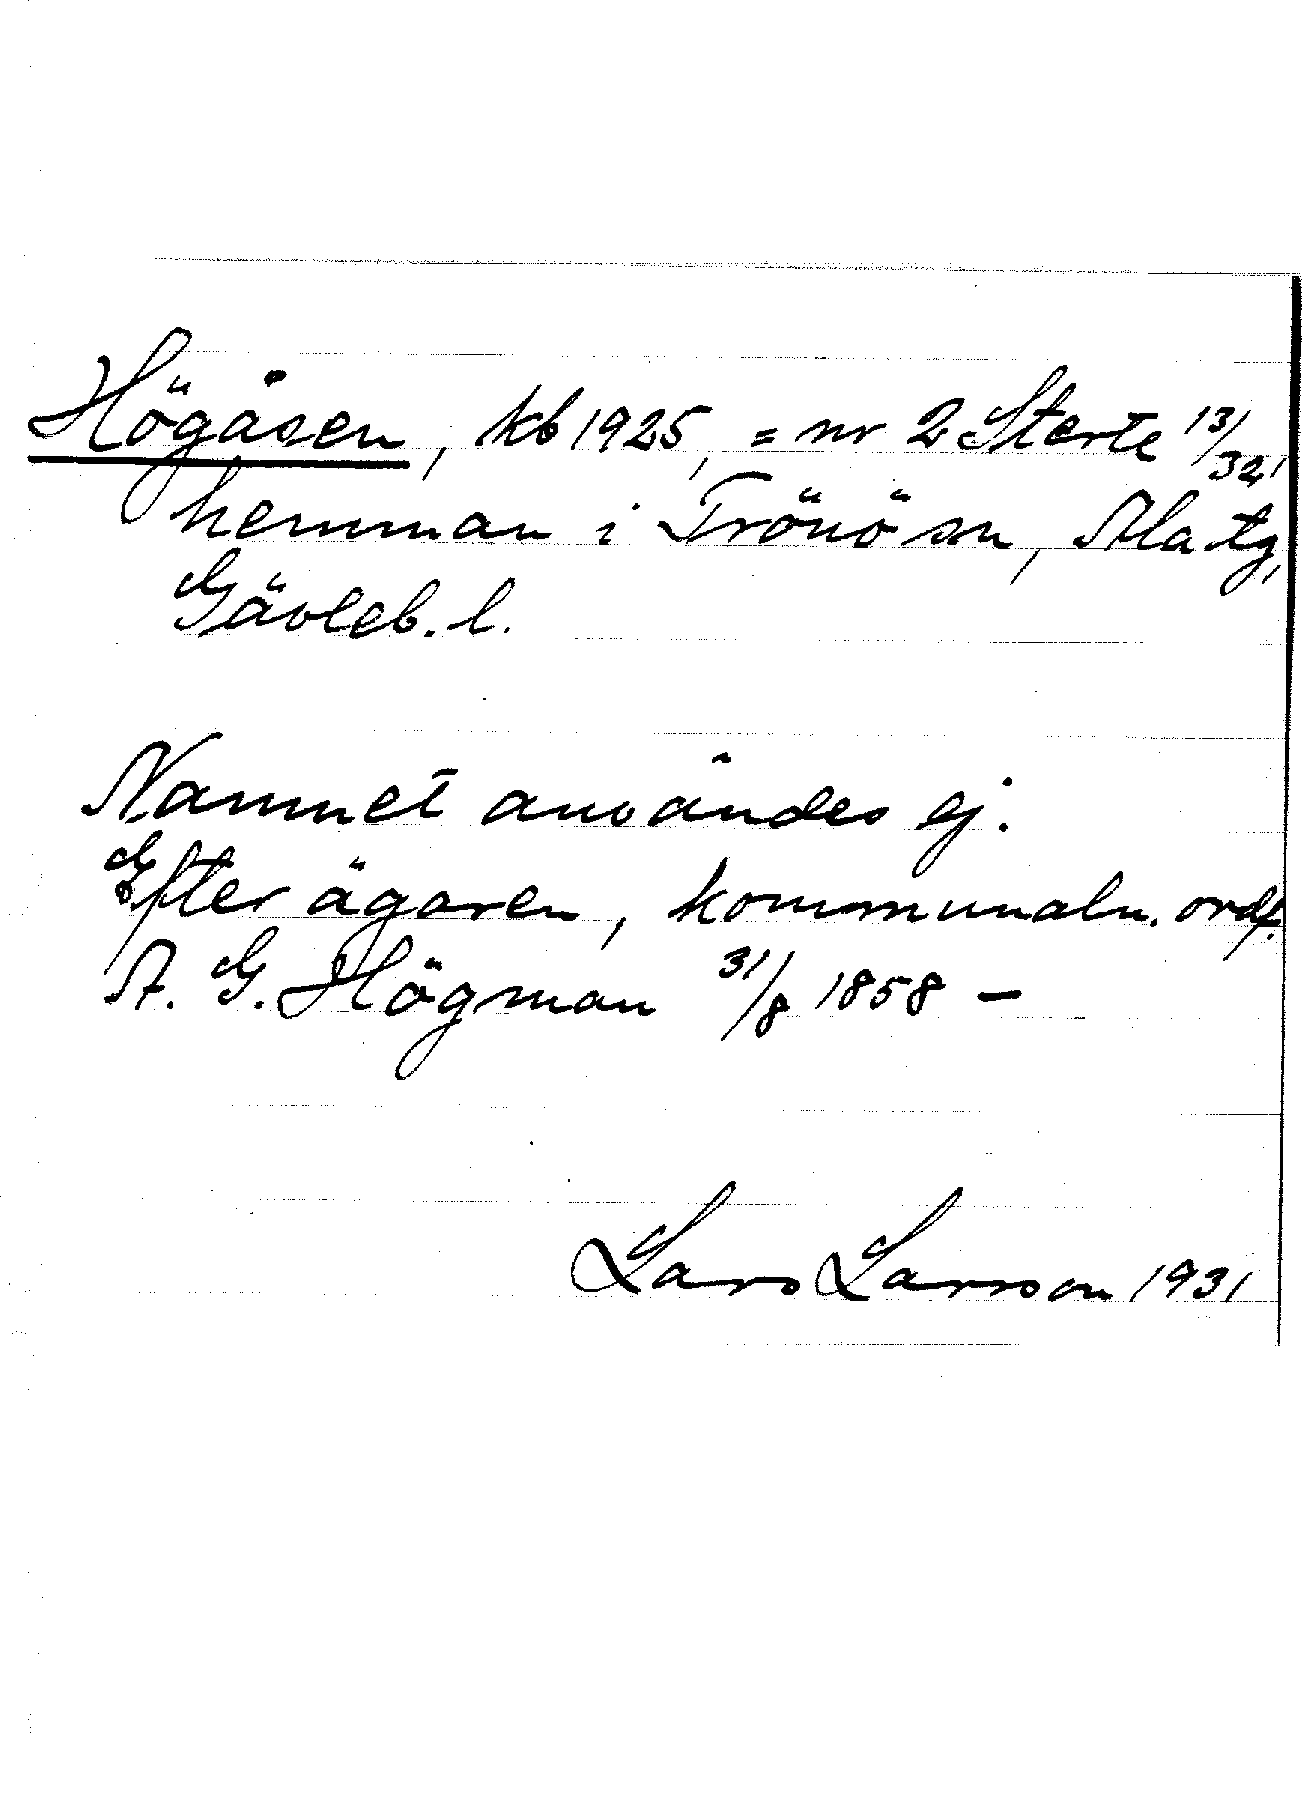 Högåsen, kb 1925, = nr 2 Sterte 13/32,
hemman i Trönö sn, Ala tg,
Gävleb. l.
Namnet användes ej.
Efter ägaren, kommunaln. ordf.
A. G. Högman 31/8 1858 –
Lars Larsson 1931